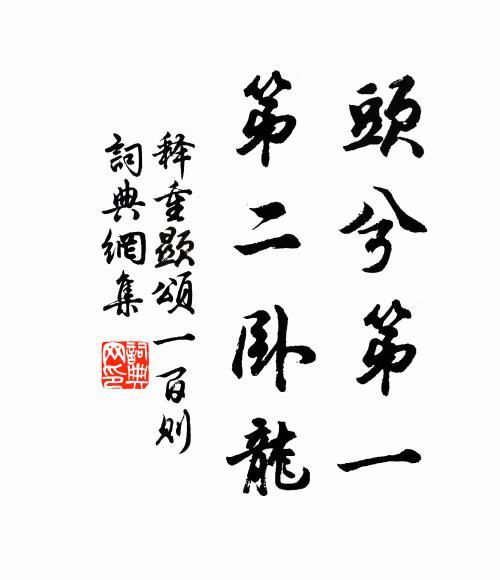 頭兮第一
第二卧龍
释重顯頌一百则
詞典網集
詞典网印